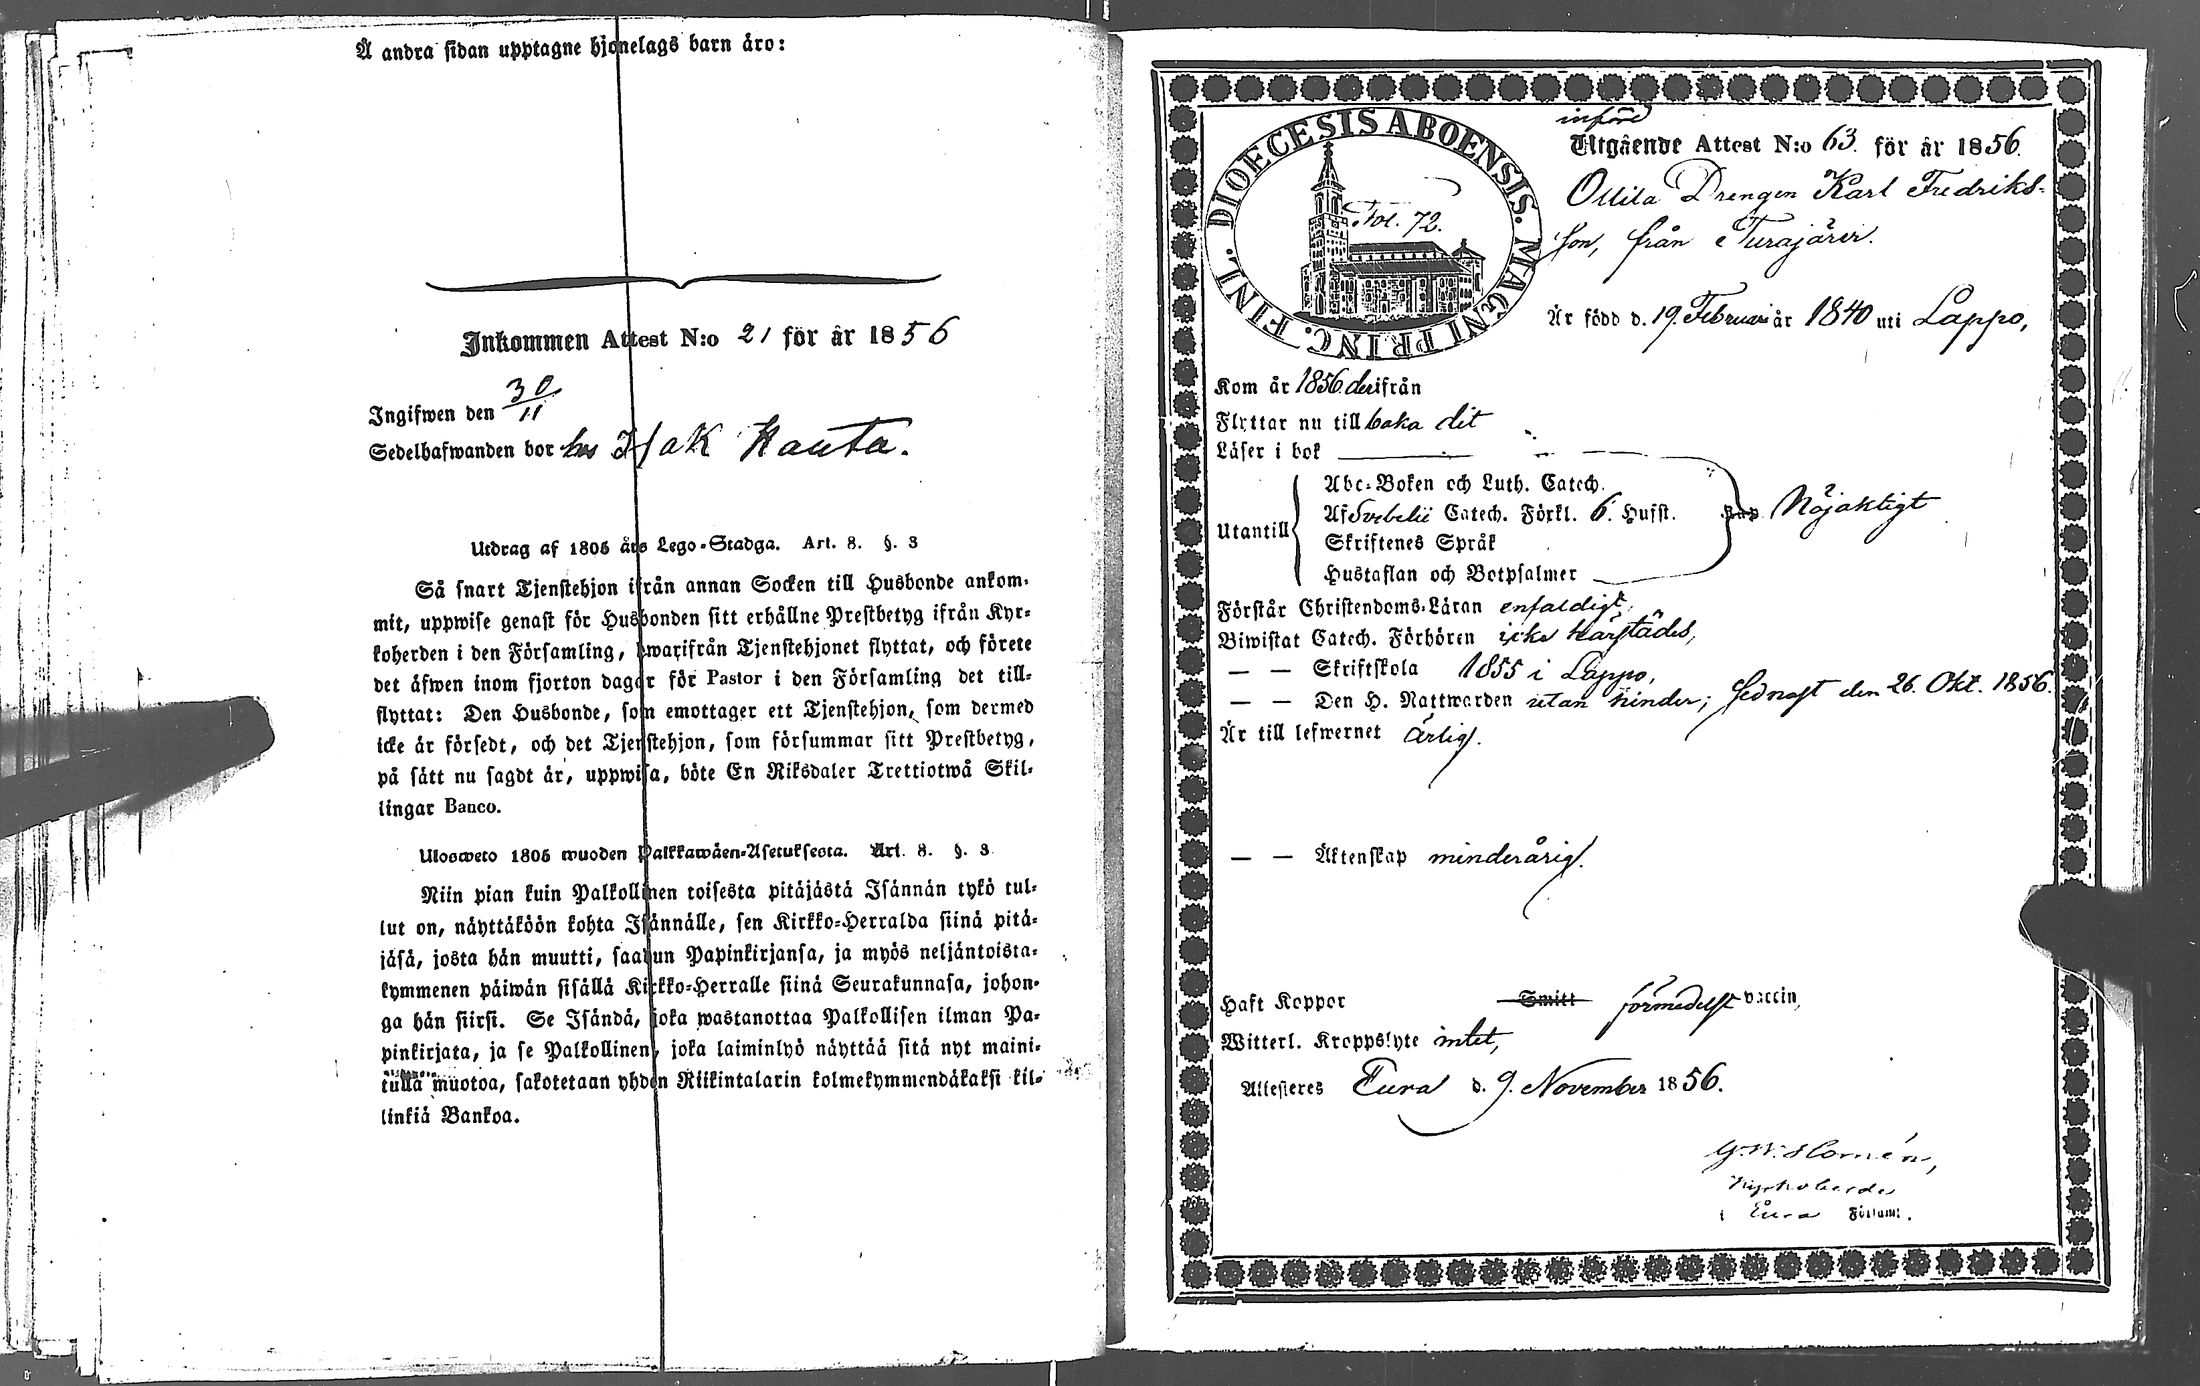 Å andra sidan upptagne hjonelags barn äro:
Inkommen Attest N:o 21 för år 1856
Ingifwen den 30/11
Sedelhafwanden bor hos Isak Kauta.
Utdrag af 1805 års Lego-Stadga. Art. 8. §. 3
Så snart Tjenstehjon ifrån annan Socken till Husbonde ankom-
mit, uppwise genast för Husbonden sitt erhållne Prestbetyg ifrån Kyr-
koherden i den Församling, hwarifrån Tjenstehjonet flyttat, och förete
det äfwen inom fjorton dagar för Pastor i den Församling det till-
flyttat: Den Husbonde, som emottager ett Tjenstehjon, som dermed
icke är försedt, och det Tjenstehjon, som försummar sitt Prestbetyg,
på sätt nu sagdt är, uppwisa, böte En Riksdaler Trettiotwå Skil-
lingar Banco.
Ulosweto 1805 wuoden Palkkawäen-Asetuksesta. Art. 8. §. 3
Niin pian kuin Palkollinen toisesta pitäjästä Isännän tykö tul-
lut on, näyttäköön kohta Isännälle, sen Kirkko-Herralda siinä pitä-
jäsä, josta hän muutti, saadun Papinkirjansa, ja myös neljäntoista-
kymmenen päiwän sisällä Kirkko-Herralle siinä Seurakunnasa, johon-
ga hän siirsi. Se Isändä, joka wastanottaa Palkollisen ilman Pa-
pinkirjata, ja se Palkollinen, joka laiminlyö näyttää sitä nyt maini-
tulla muotoa, sakotetaan yhden Riikintalarin kolmekymmendäkaksi kil-
linkiä Bankoa.
DIOECESIS ABOENSIS. MAGNI PRINC. FINL.
Fol. 72.
införd
Utgående Attest N:o 63. för år 1856.
Drengen Karl Fredriks-
son, från Turajärvi.
Är född d. 19. Februari år 1840 uti Lappo,
Kom år 1856 derifrån
Flyttar nu till baka dit
Läser i bok
Utantill
Abc-Boken och Luth. Catech.
Af Svebelii Catech. Förkl. 6. Hufst.
Skriftenes Språk
Hustaflan och Botpsalmer
Nöjaktigt
Förstår Christendoms-Läran enfaldigt,
Biwistat Catech. Förhören icke härstädes,
— — Skriftskola 1855 i Lappo,
— — Den H. Nattwarden utan hinder; sednast den 26. Okt. 1856.
Är till lefwernet ärlig.
— — Äktenskap minderårig.
Haft Koppor Smitt förmedelst vaccin,
Witterl. Kroppslyte intet,
Attesteras Eura d. 9. November 1856.
G. W. Homén,
Kyrkoherde
i Eura Församl.